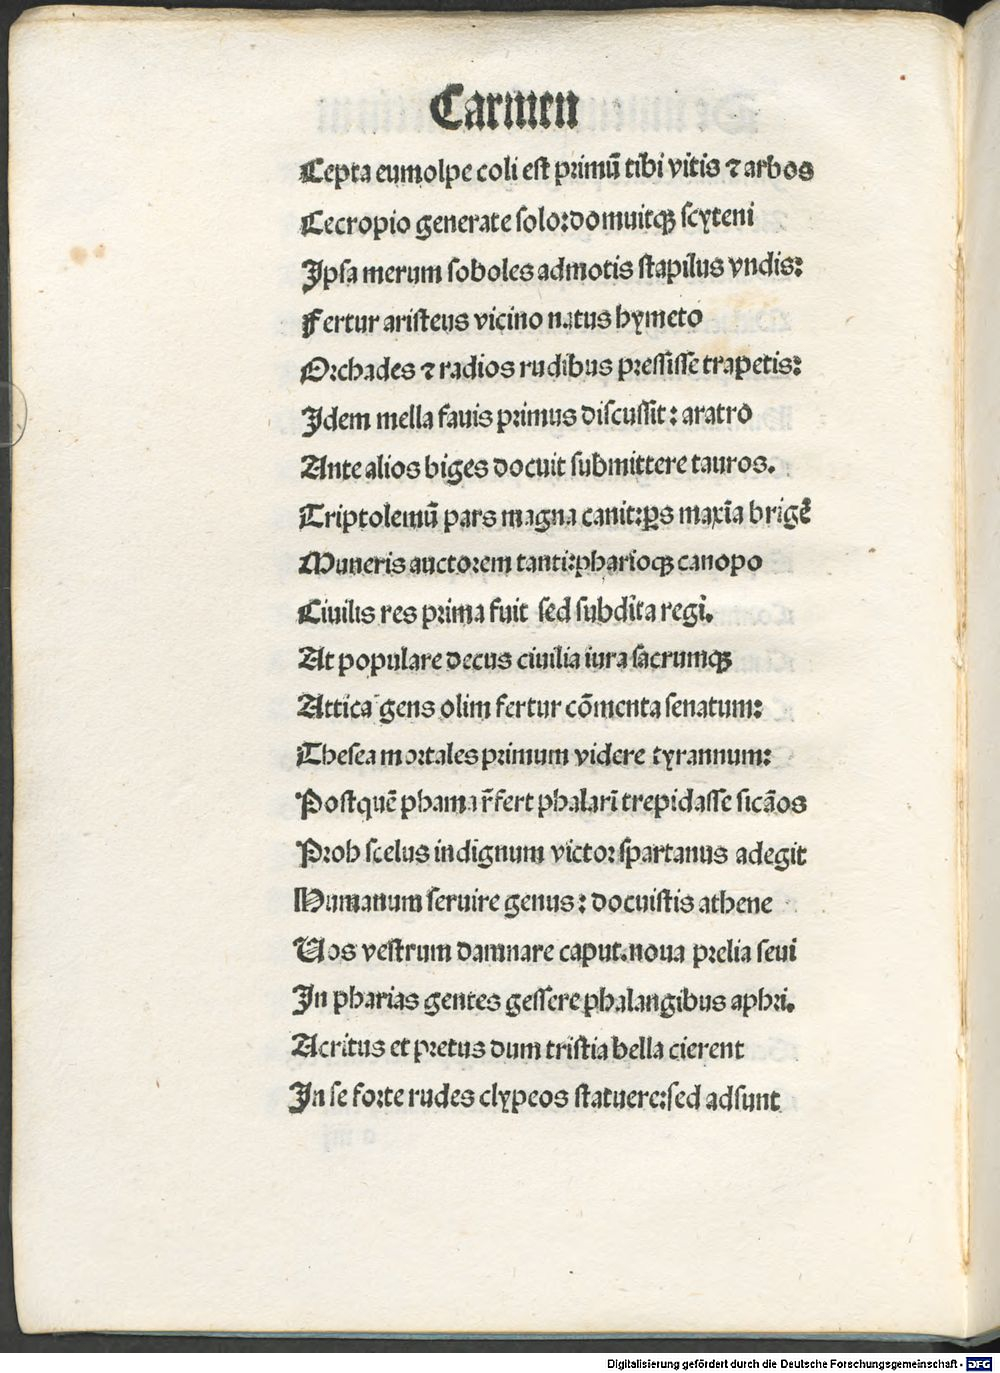 Carmen
Cepta eumolpe coli est primū tibi vitis ⁊ arbos
Cecropio generate solo:domuitqꝫ scyteni
Ipsa merum soboles admotis stapilus vndis:
Fertur aristeus vicino natus hymeto
Orchades ⁊ radios rudibus pressisse trapetis:
Idem mella fauis primus discussit: aratro
Ante alios biges docuit submittere tauros.
Triptolemū pars magna canit:ꝑs maxīa brigē
Muneris auctorem tanti:pharioqꝫ canopo
Ciuilis res prima fuit sed subdita regi.
At populare decus ciuilia iura sacrumqꝫ
Attica gens olim fertur cōmenta senatum:
Thesea mortales primum videre tyrannum:
Postquē phama r̄fert phalarī trepidasse sicāos
Proh scelus indignum victor spartanus adegit
Humanum seruire genus: docuistis athene
Vos vestrum damnare caput.noua prelia seui
In pharias gentes gessere phalangibus aphri.
Acritus et pretus dum tristia bella cierent
In se forte rudes clypeos statuere:sed adsunt
Digitalisierung gefördert durch die Deutsche Forschungsgemeinschaft - DFG